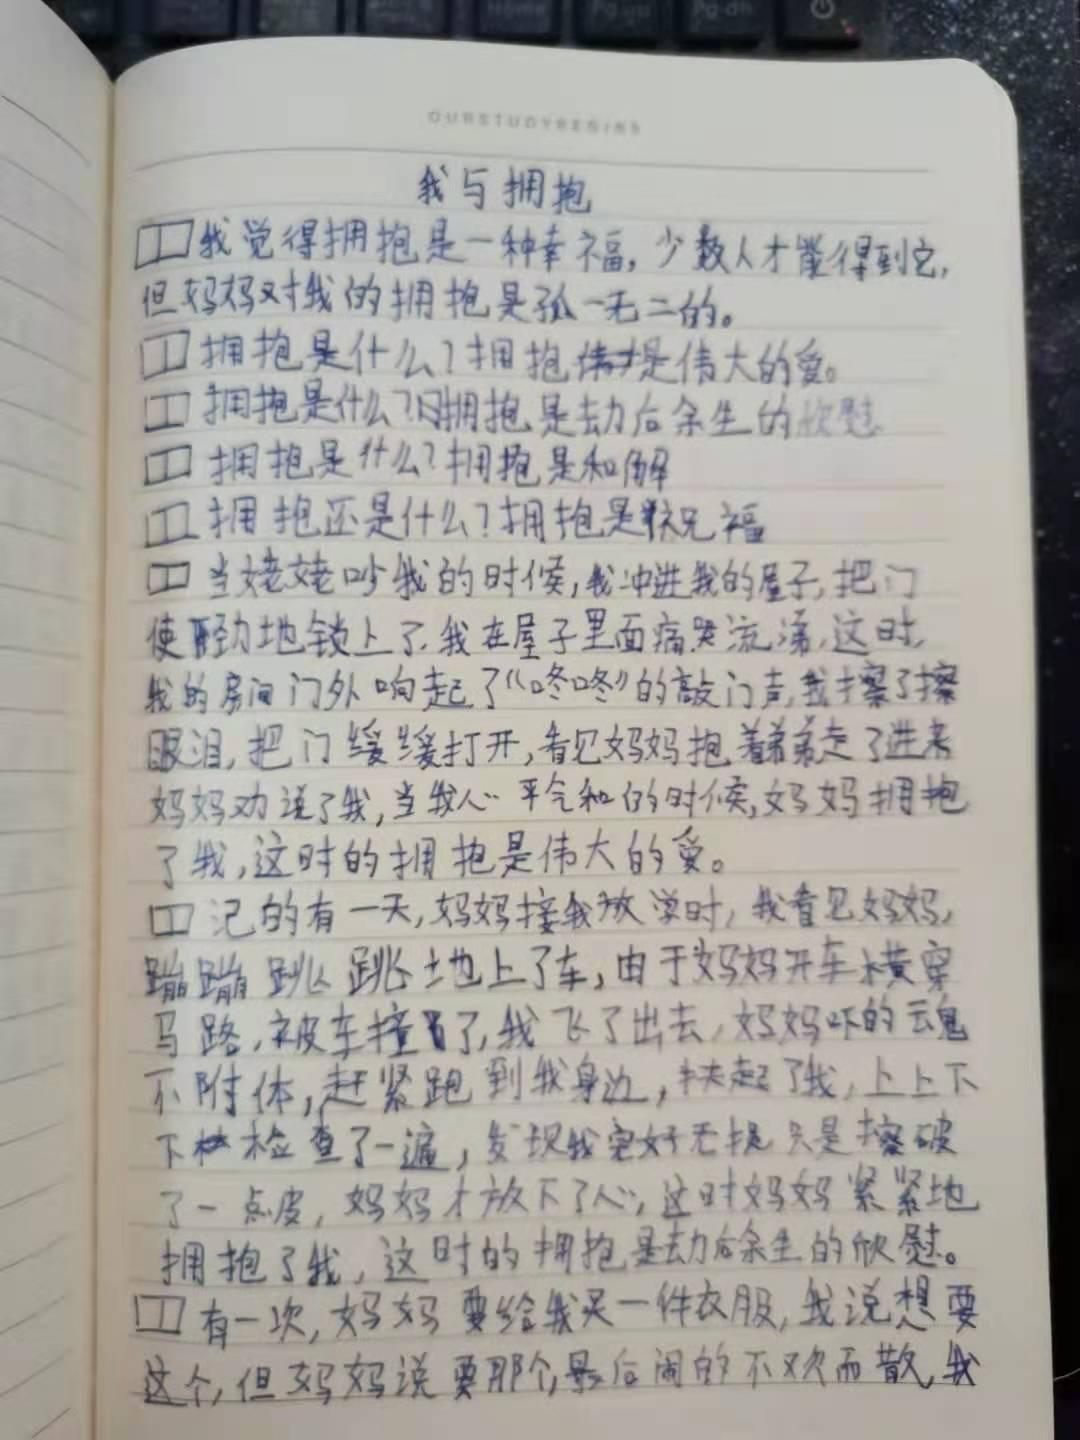 Home
Pg up
Pg dn
OURSTUDYBEGINS
我与拥抱
我觉得拥抱是一种幸福，少数人才能得到它，
但妈妈对我的拥抱是孤一无二的。
拥抱是什么？拥抱是伟大的爱。
拥抱是什么？拥抱是劫后余生的欣慰
拥抱是什么？拥抱是和解
拥抱还是什么？拥抱是祝福
当姥姥吵我的时候，我冲进我的屋子，把门
使劲地锁上了，我在屋子里面痛哭流涕，这时，
我的房间门外响起了“咚咚”的敲门声，我擦了擦
眼泪，把门缓缓打开，看见妈妈抱着弟弟走了进来
妈妈劝说了我，当我心平气和的时候，妈妈拥抱
了我，这时的拥抱是伟大的爱。
记的有一天，妈妈接我放学时，我看见妈妈，
蹦蹦跳跳地上了车，由于妈妈开车横穿
马路，被车撞了，我飞了出去，妈妈吓的魂
不附体，赶紧跑到我身边，扶起了我，上上下
下检查了一遍，发现我完好无损只是擦破
了一点皮，妈妈才放下了心，这时妈妈紧紧地
拥抱了我，这时的拥抱是劫后余生的欣慰。
有一次，妈妈要给我买一件衣服，我说想要
这个，但妈妈说要那个，最后闹的不欢而散，我